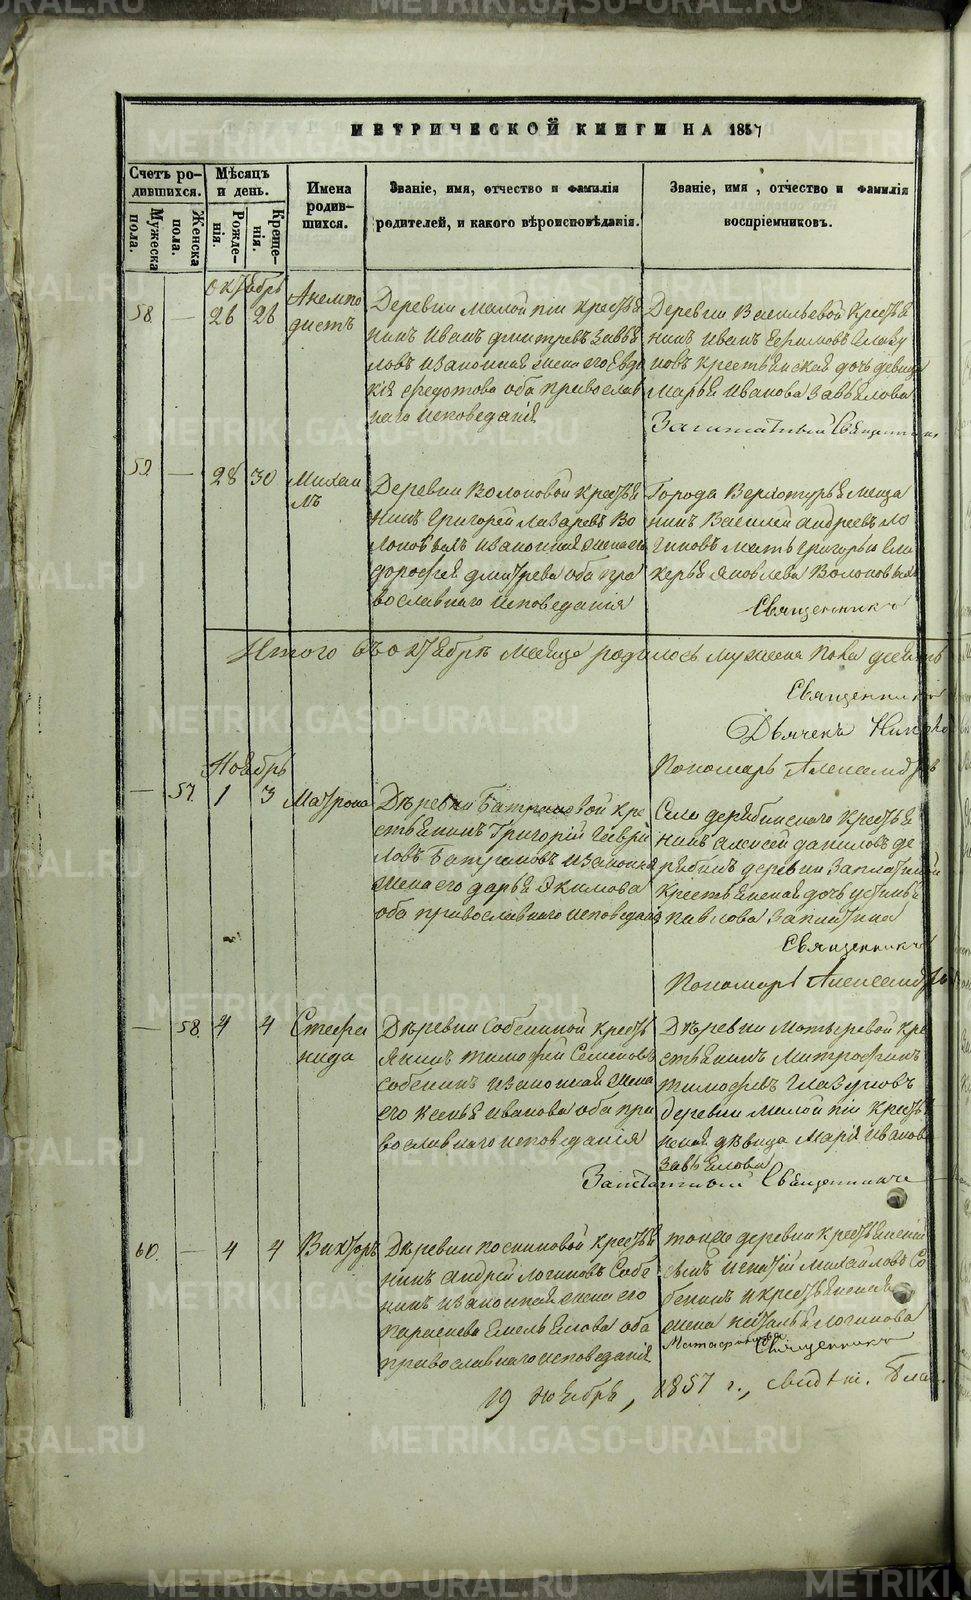 МЕТРИЧЕСКОЙ КНИГИ НА 1857
Счетъ родившихся.
Мѣсяцъ и день.
Имена родившихся.
Званіе, имя, отчество и фамилія родителей, и какого вѣроисповѣданія.
Званіе, имя, отчество и фамилія воспріемниковъ.
Мужеска пола.
Женска пола.
Рожденія.
Крещенія.
Октябрь
58 — 26 26 Акемпо
дистъ
Деревни малой піи крестья
нинъ Иванъ дмитревъ Завья
ловъ и законная жена его Евдо
кія Федотова оба православ
наго исповеданія
Деревни Васильевой Крестья
нинъ Иванъ Глазу
новъ крестьянская дочь девица
Марья Иванова Завьялова
Заштатный Священник
59. — 28 30 Михаи
лъ
Деревни Волоковой крестья
нинъ Григорей Лазаревъ Во
и законная жена его
дорофея дмитрева оба пра
вославнаго исповедания
Города Верхотурья меща
нинъ Василей Андреевъ Ло
гиновъ мать Григорья Гли
керья Яковлева
Священникъ
Итого въ октябрѣ месяце родилось мужеска пола девять
Священникъ
Дьячекъ
Пономарь Александръ
Ноябрь
— 57. 1 3 Матрона
Дѣревни Батраковой кре
стьянинъ Григорій Гаври
ловъ Батраковъ и законная
жена его дарья Якимова
оба православнаго исповеданія
Села дерябинскаго Крестья
нинъ алексей даниловъ де
рябинъ деревни Заплатиной
крестьянская дочь устинья
павлова Заплатина
Священникъ
Пономарь Александръ
— 58. 4 4 Стефа
нида
Дѣревни Собениной кресть
янинъ тимофей Семеновъ
Собенинъ и законная жена
его ксенья Иванова оба пра
вославнаго исповедания
Дѣревни Матыревой кре
стьянинъ Митрофанъ
тимофѣевъ Глазуновъ
деревни малой піи крестья
нская дѣвица Марія Иванова
Завьялова
Заштатный Священникъ
60. — 4 4 Викторъ
Дѣревни поскиновой крестья
нинъ Андрей логиновъ Собе
нинъ и законная жена его
Емельянова оба
православнаго исповеданія
той же деревни крестьянскій
сынъ Игнатій михайловъ Со
бенинъ и крестьянская
жена наталья логинова
Священникъ
19 ноября, 1857 г., свидѣт. Бла
METRIKI.GASO-URAL.RU